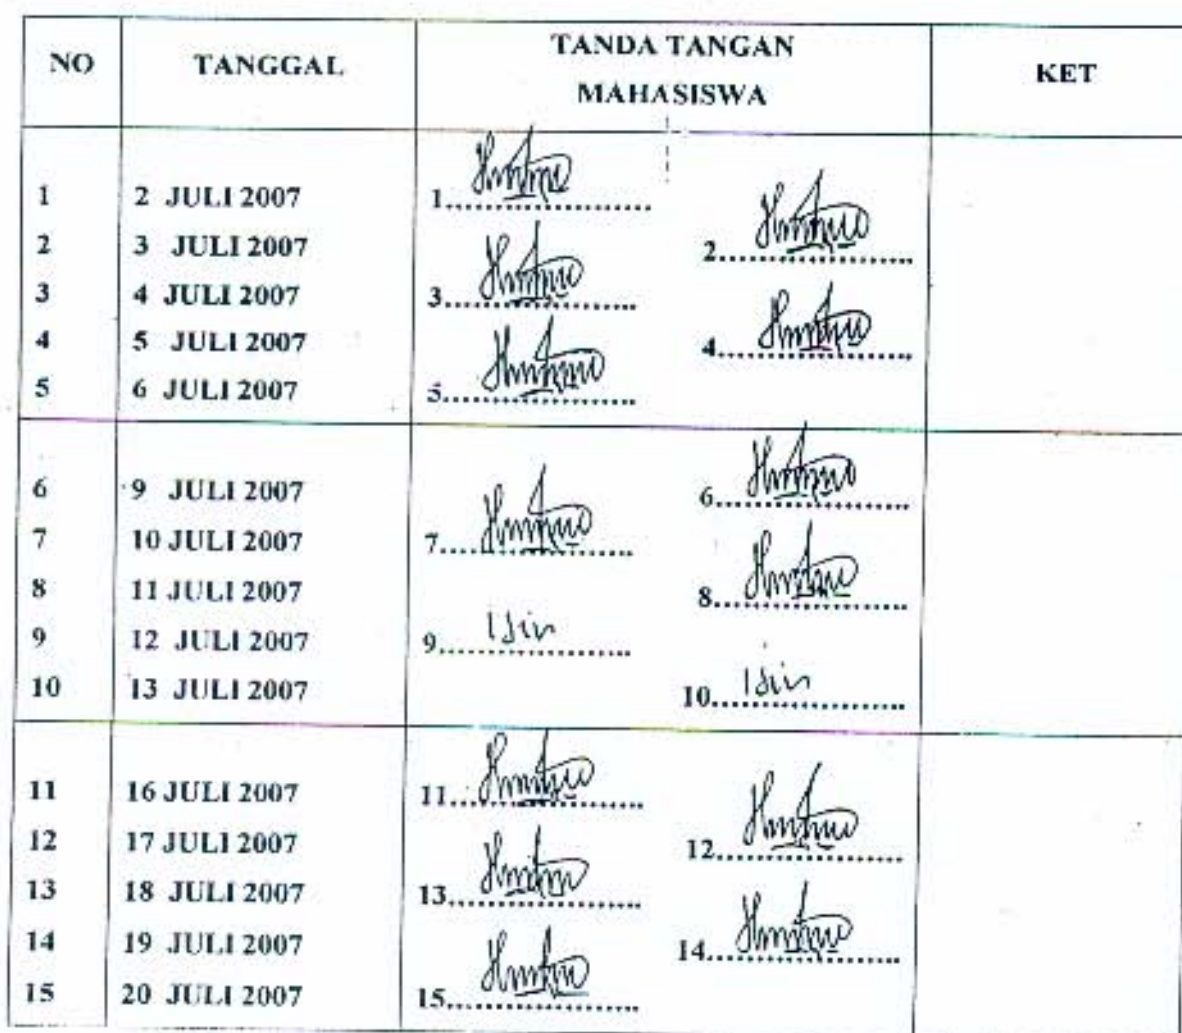 NO TANGGAL TANDA TANGAN MAHASISWA KET
1 2 JULI 2007 1....................
2 3 JULI 2007 2....................
3 4 JULI 2007 3....................
4 5 JULI 2007 4....................
5 6 JULI 2007 5....................
6 9 JULI 2007 6....................
7 10 JULI 2007 7....................
8 11 JULI 2007 8....................
9 12 JULI 2007 9.... Izin
10 13 JULI 2007 10.... Izin
11 16 JULI 2007 11....................
12 17 JULI 2007 12....................
13 18 JULI 2007 13....................
14 19 JULI 2007 14....................
15 20 JULI 2007 15....................